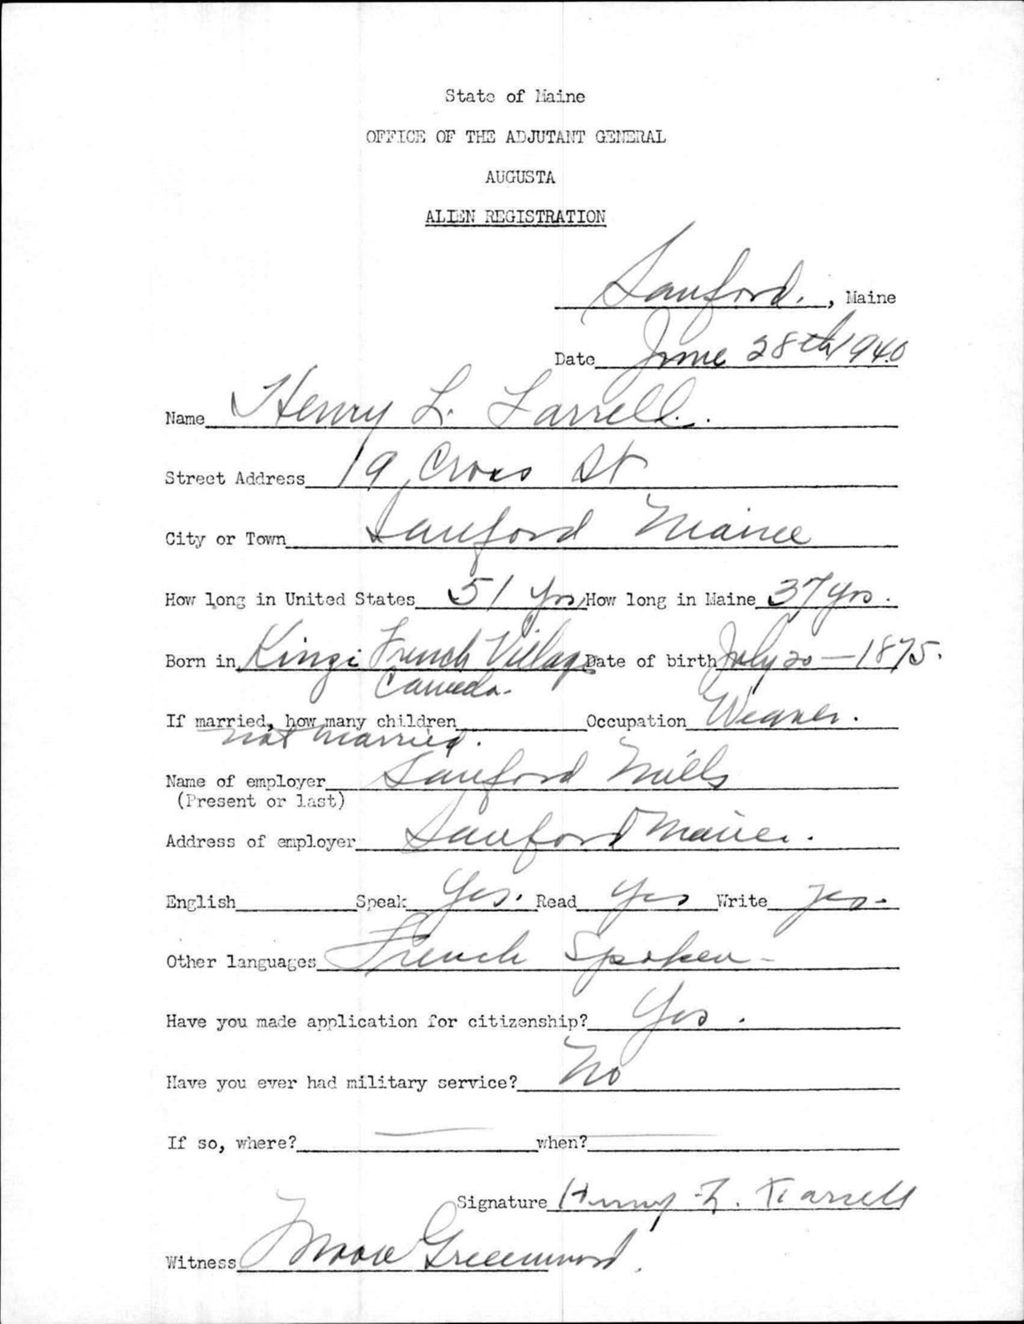 State of Maine
OFFICE OF THE ADJUTANT GENERAL
AUGUSTA
ALIEN REGISTRATION
Sanford., Maine
Date June 28th 1940
Name Henry L. Farrell.
Street Address 19 Cross St
City or Town Sanford Maine
How long in United States 51 yrs How long in Maine 37 yrs.
Born in Kings French Village Date of birth July 20 - 1875.
Canada.
If married, how many children Occupation Weaver.
not married.
Name of employer Sanford Mills
(Present or last)
Address of employer Sanford Maine.
English Speak Yes. Read Yes Write yes.
Other languages French Spoken -
Have you made application for citizenship? Yes.
Have you ever had military service? No
If so, where? when?
Signature Henry L. Farrell
Witness Greenwood.